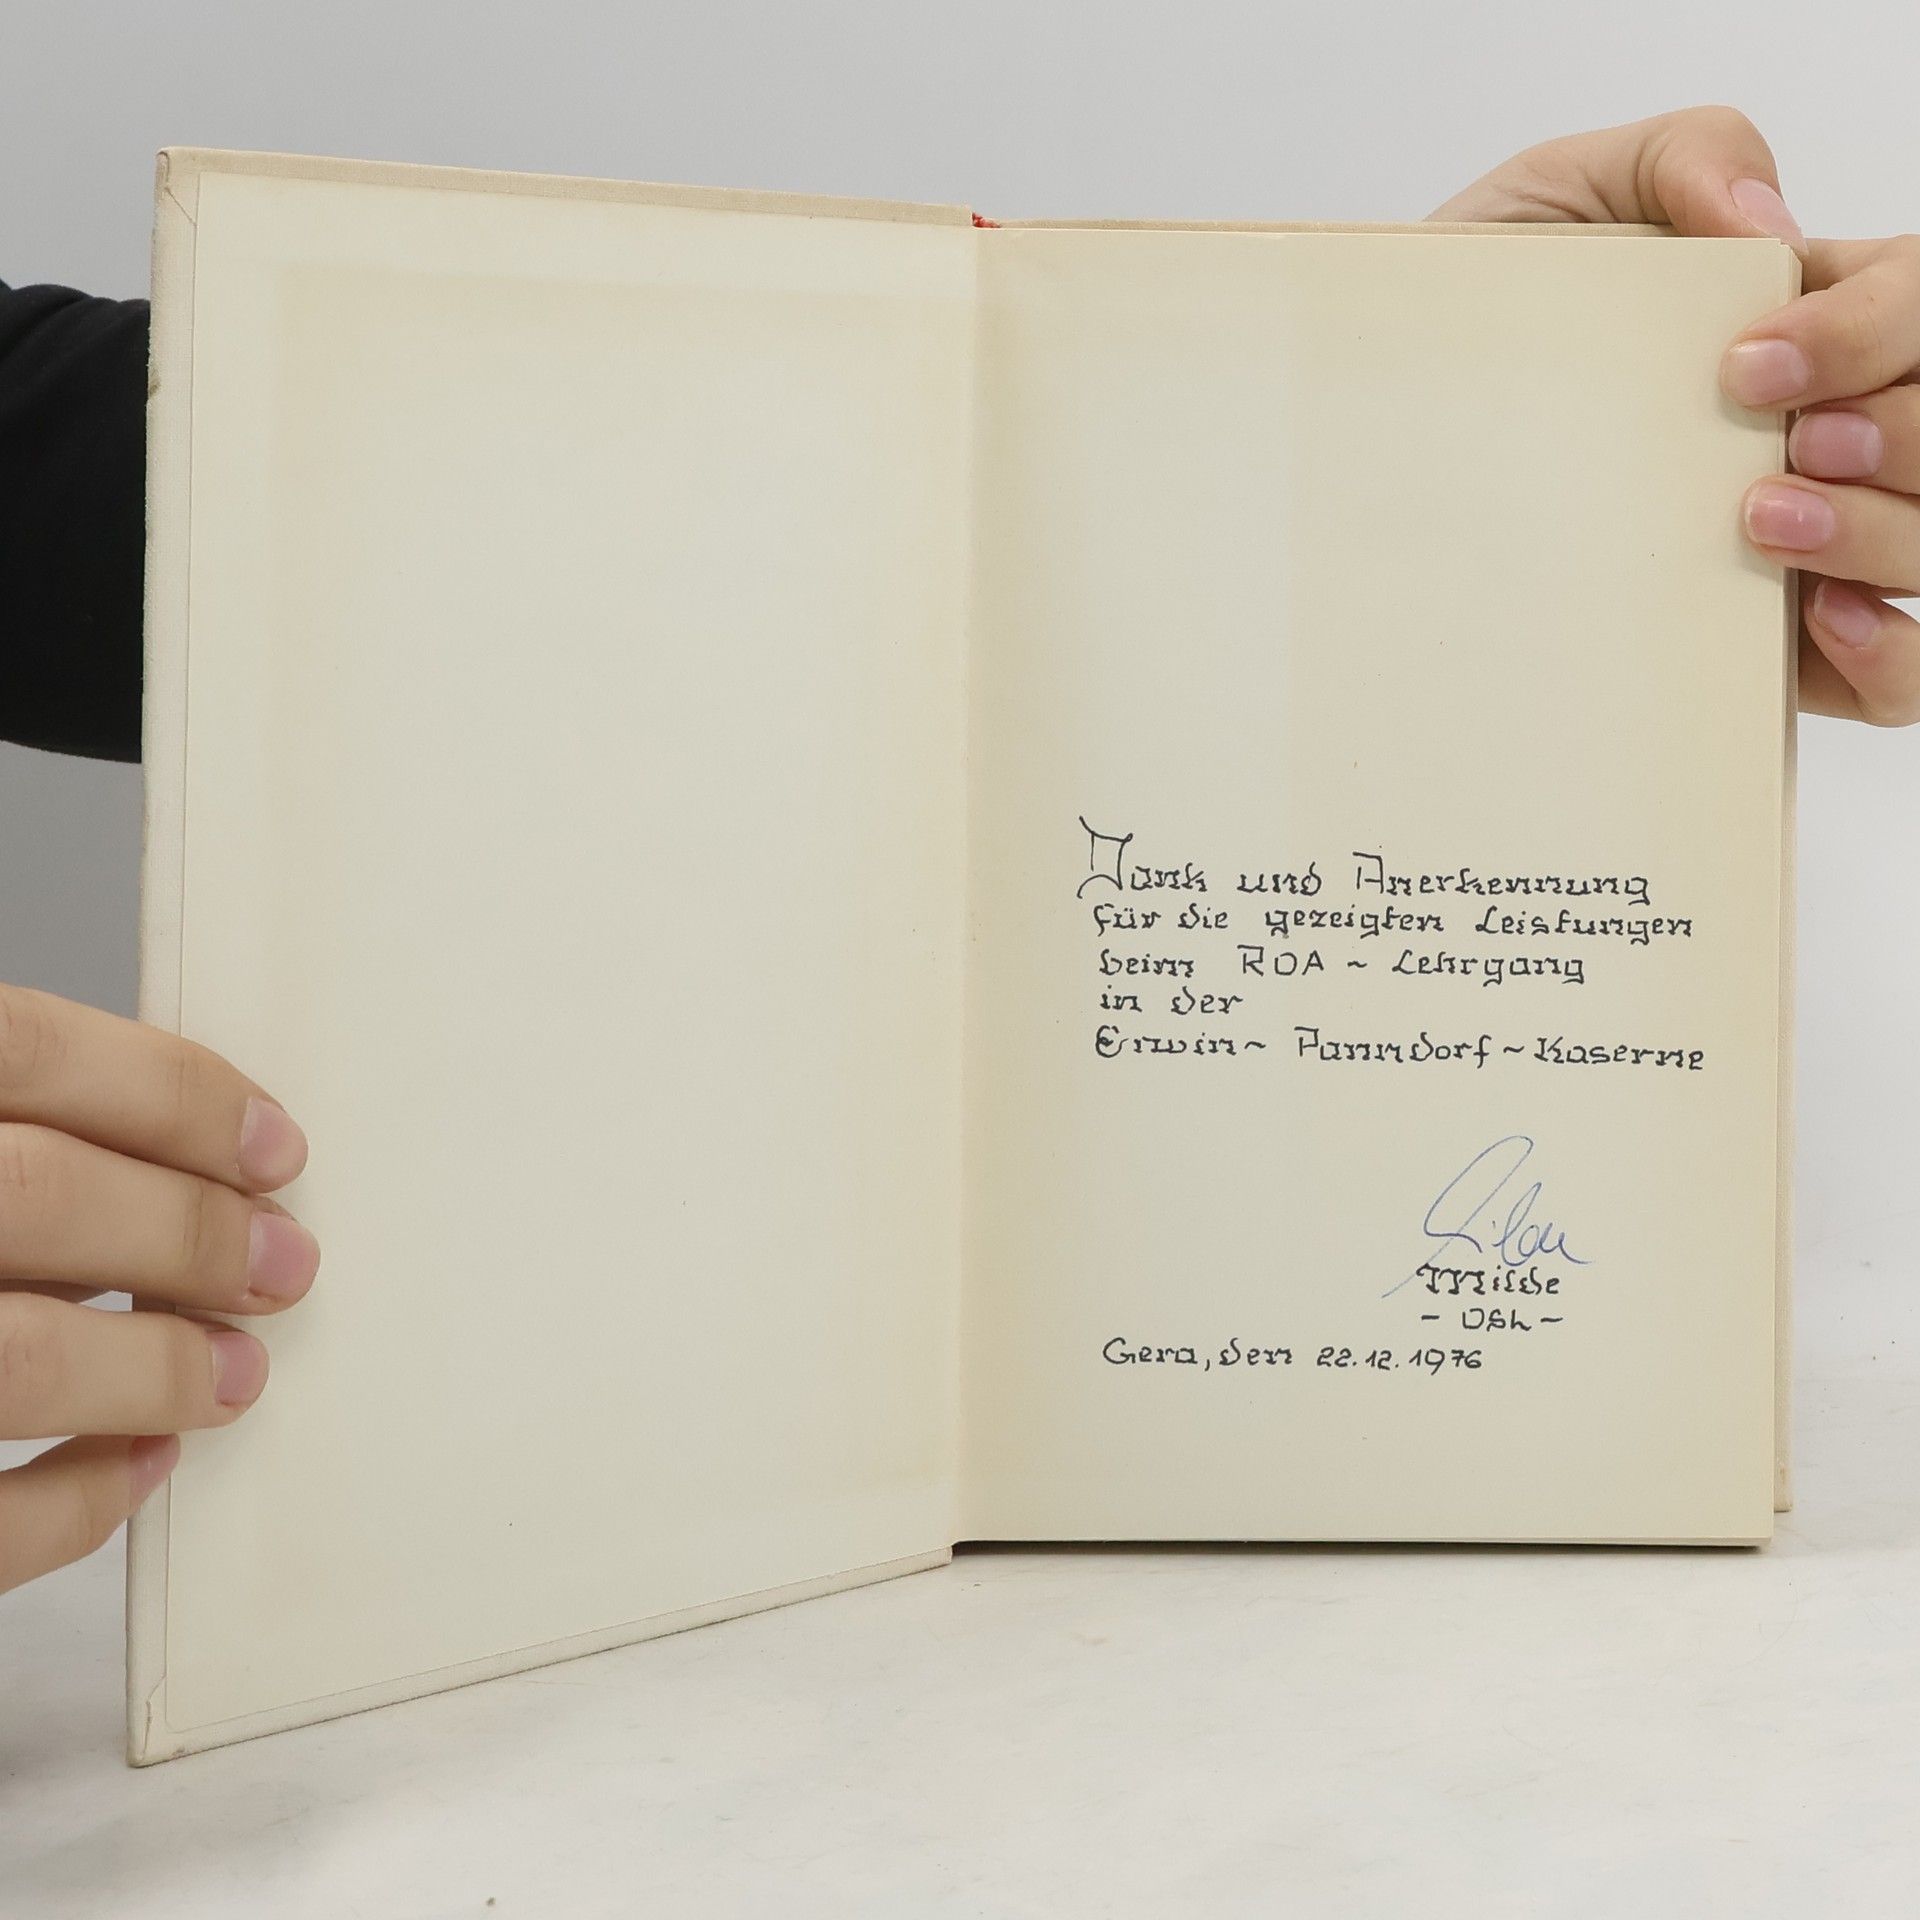 Dank und Anerkennung
für die gezeigten Leistungen
beim ROA ~ Lehrgang
in der
Erwin ~ Panndorf ~ Kaserne
Milde
- OSL ~
Gera, den 22.12.1976